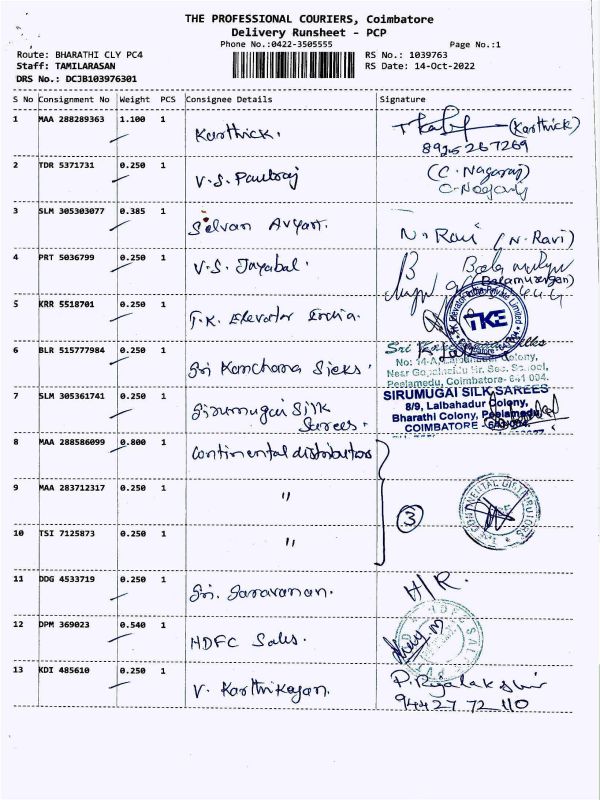 THE PROFESSIONAL COURIERS, Coimbatore
Delivery Runsheet - PCP
Phone No.:0422-3505555
Page No.:1
Route: BHARATHI CLY PC4
RS No.: 1039763
Staff: TAMILARASAN
RS Date: 14-Oct-2022
DRS No.: DCJB103976301
S No Consignment No Weight PCS Consignee Details Signature
1 MAA 288289363 1.100 1 Karthick. (Karthick)
8925267269
2 TDR 5371731 0.250 1 V.S. Paulraj (C. Nagaraj)
C. Nagaraj
3 SLM 305303077 0.385 1 Selvan N. Ravi (N. Ravi)
4 PRT 5036799 0.250 1 V.S. Jayabal. (Balamurugan)
5 KRR 5518701 0.250 1 T.K. Elevator India. TKE
6 BLR 515777984 0.250 1 Sri Kanchana Sri
Colony,
Near Hr. Sec. School,
Peelamedu, Coimbatore- 641 004.
7 SLM 305361741 0.250 1 Sirumugai Silk
Sarees.
SIRUMUGAI SILK SAREES
8/9, Lalbahadur Colony,
Bharathi Colony, Peelamedu,
COIMBATORE -
8 MAA 288586099 0.800 1 Continental distributors
9 MAA 283712317 0.250 1 "
3
CONTINENTAL DISTRIBUTORS
10 TSI 7125873 0.250 1 "
11 DDG 4533719 0.250 1 Sri. Saravanan. H/R.
12 DPM 369023 0.540 1 HDFC Sales. HDFC SALES
13 KDI 485610 0.250 1 V. Karthikayan.
94427 72 110